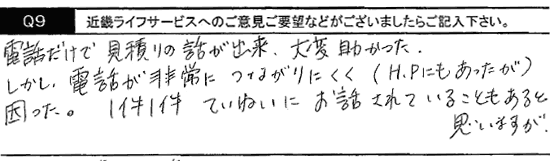 Q9 近畿ライフサービスへのご意見ご要望などがございましたらご記入下さい。
電話だけで見積りの話が出来、大変助かった.
しかし、電話が非常につながりにくく(H.Pにもあったが)
困った。 1件1件 ていねいにお話されていることもあると
思いますが.